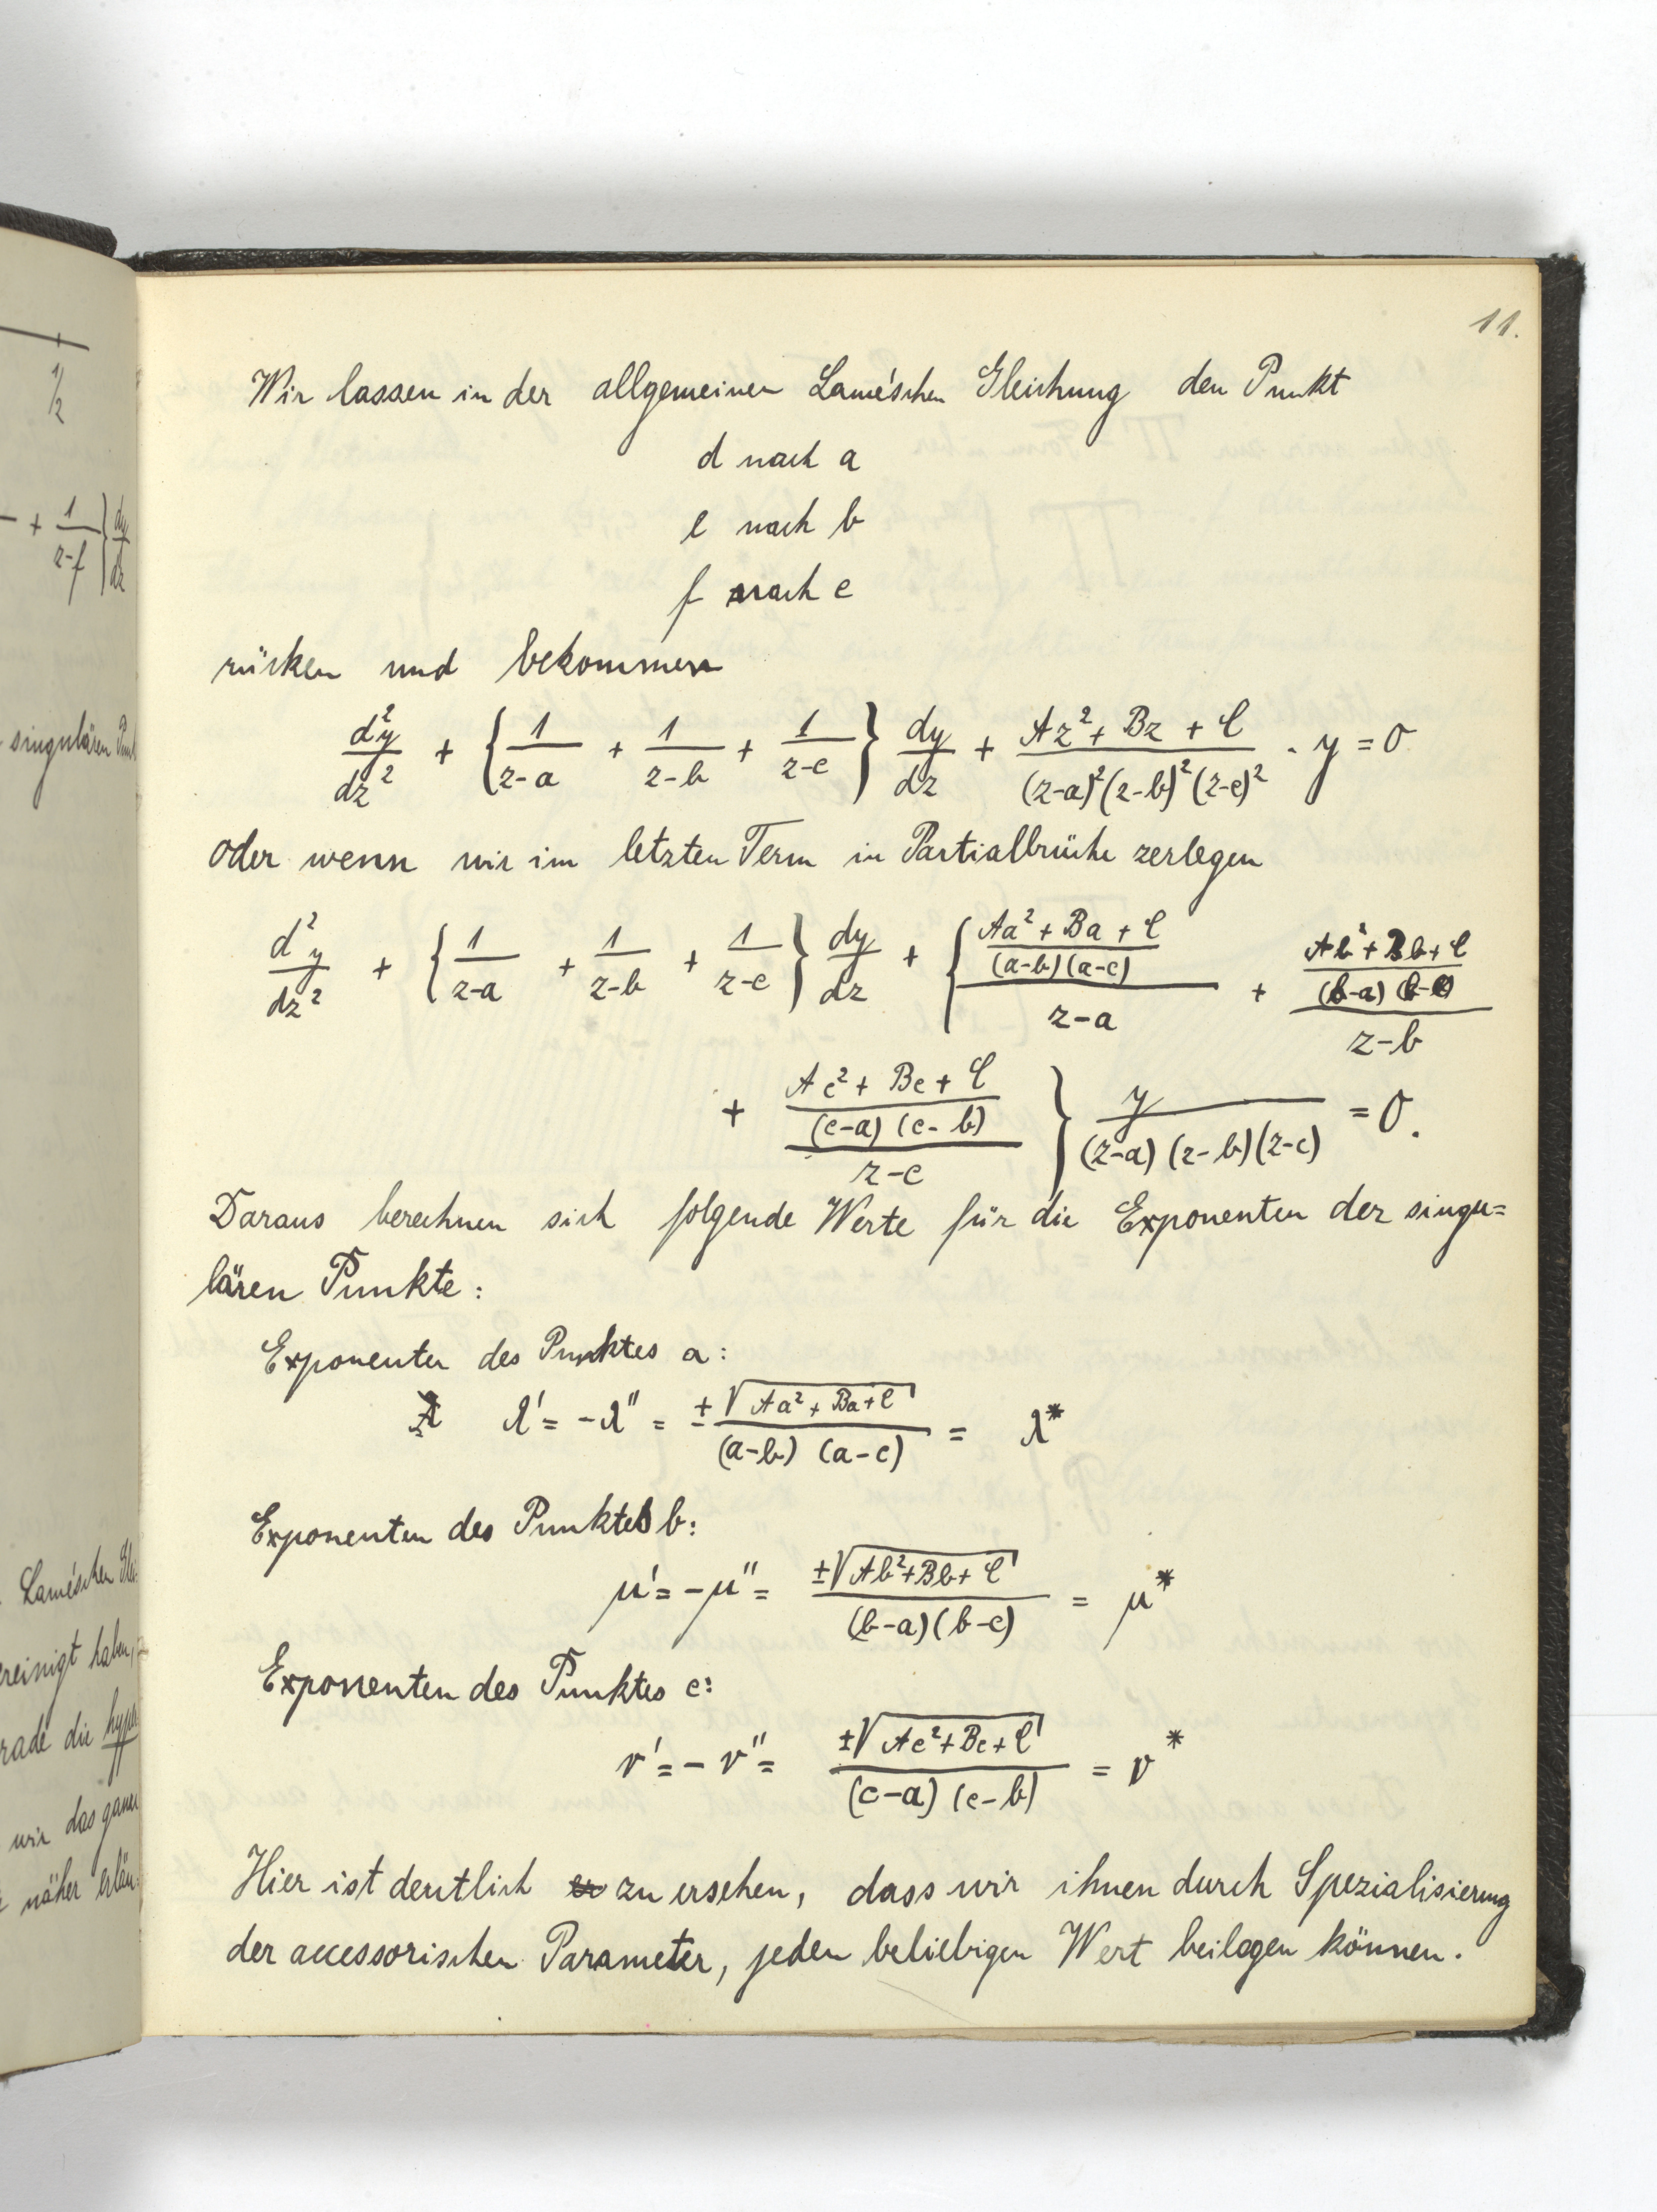 11.
Wir lassen in der allgemeinen Lamé'schen Gleichung den Punkt
d nach a
e nach b
f nach c
rücken und bekommen
d²y/dz² + {1/(z-a) + 1/(z-b) + 1/(z-c)} dy/dz + (Az² + Bz + C)/((z-a)²(z-b)²(z-c)²) · y = 0
oder wenn wir im letzten Term in Partialbrüche zerlegen
d²y/dz² + {1/(z-a) + 1/(z-b) + 1/(z-c)} dy/dz + {((Aa² + Ba + C)/((a-b)(a-c)))/(z-a) + ((Ab² + Bb + C)/((b-a)(b-c)))/(z-b)
+ ((Ac² + Bc + C)/((c-a)(c-b)))/(z-c)} y/((z-a)(z-b)(z-c)) = 0.
Daraus berechnen sich folgende Werte für die Exponenten der singu=
lären Punkte:
Exponenten des Punktes a:
λ' = -λ'' = ±√(Aa² + Ba + C)/((a-b)(a-c)) = λ*
Exponenten des Punktes b:
μ' = -μ'' = ±√(Ab² + Bb + C)/((b-a)(b-c)) = μ*
Exponenten des Punktes c:
ν' = -ν'' = ±√(Ac² + Bc + C)/((c-a)(c-b)) = ν*
Hier ist deutlich er zu ersehen, dass wir ihnen durch Spezialisierung
der accessorischen Parameter, jeden beliebigen Wert beilegen können.
1/2
+ 1/(z-f)} dy/dz
singulären
Lamé'schen
haben,
die
wir das
näher